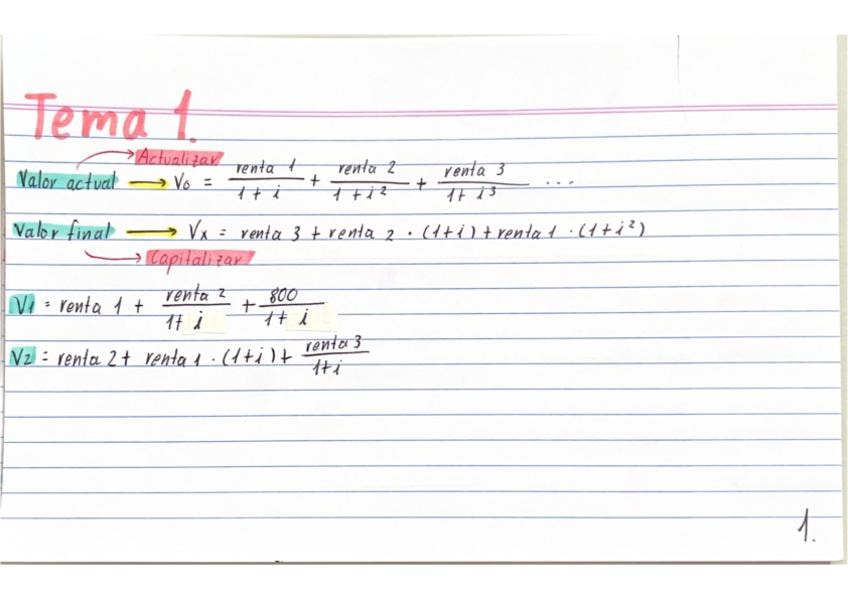 Tema 1.
Actualizar
Valor actual → V0 = renta 1 / 1 + i + renta 2 / 1 + i² + renta 3 / 1 + i³ ...
Valor final → Vx = renta 3 + renta 2 · (1+i) + renta 1 · (1+i²)
Capitalizar
V1 = renta 1 + renta 2 / 1+ i + 800 / 1+ i
V2 = renta 2 + renta 1 · (1+i) + renta 3 / 1+i
1.